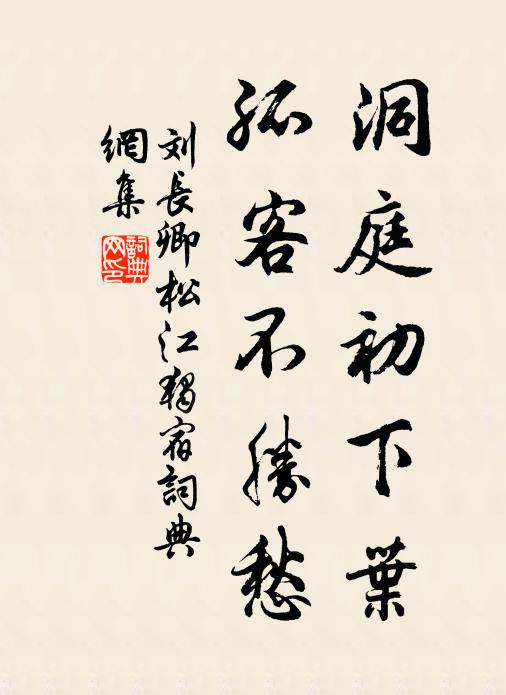 洞庭初下葉
孤客不勝愁
刘長卿松江獨宿詞典
網集
詞典网印